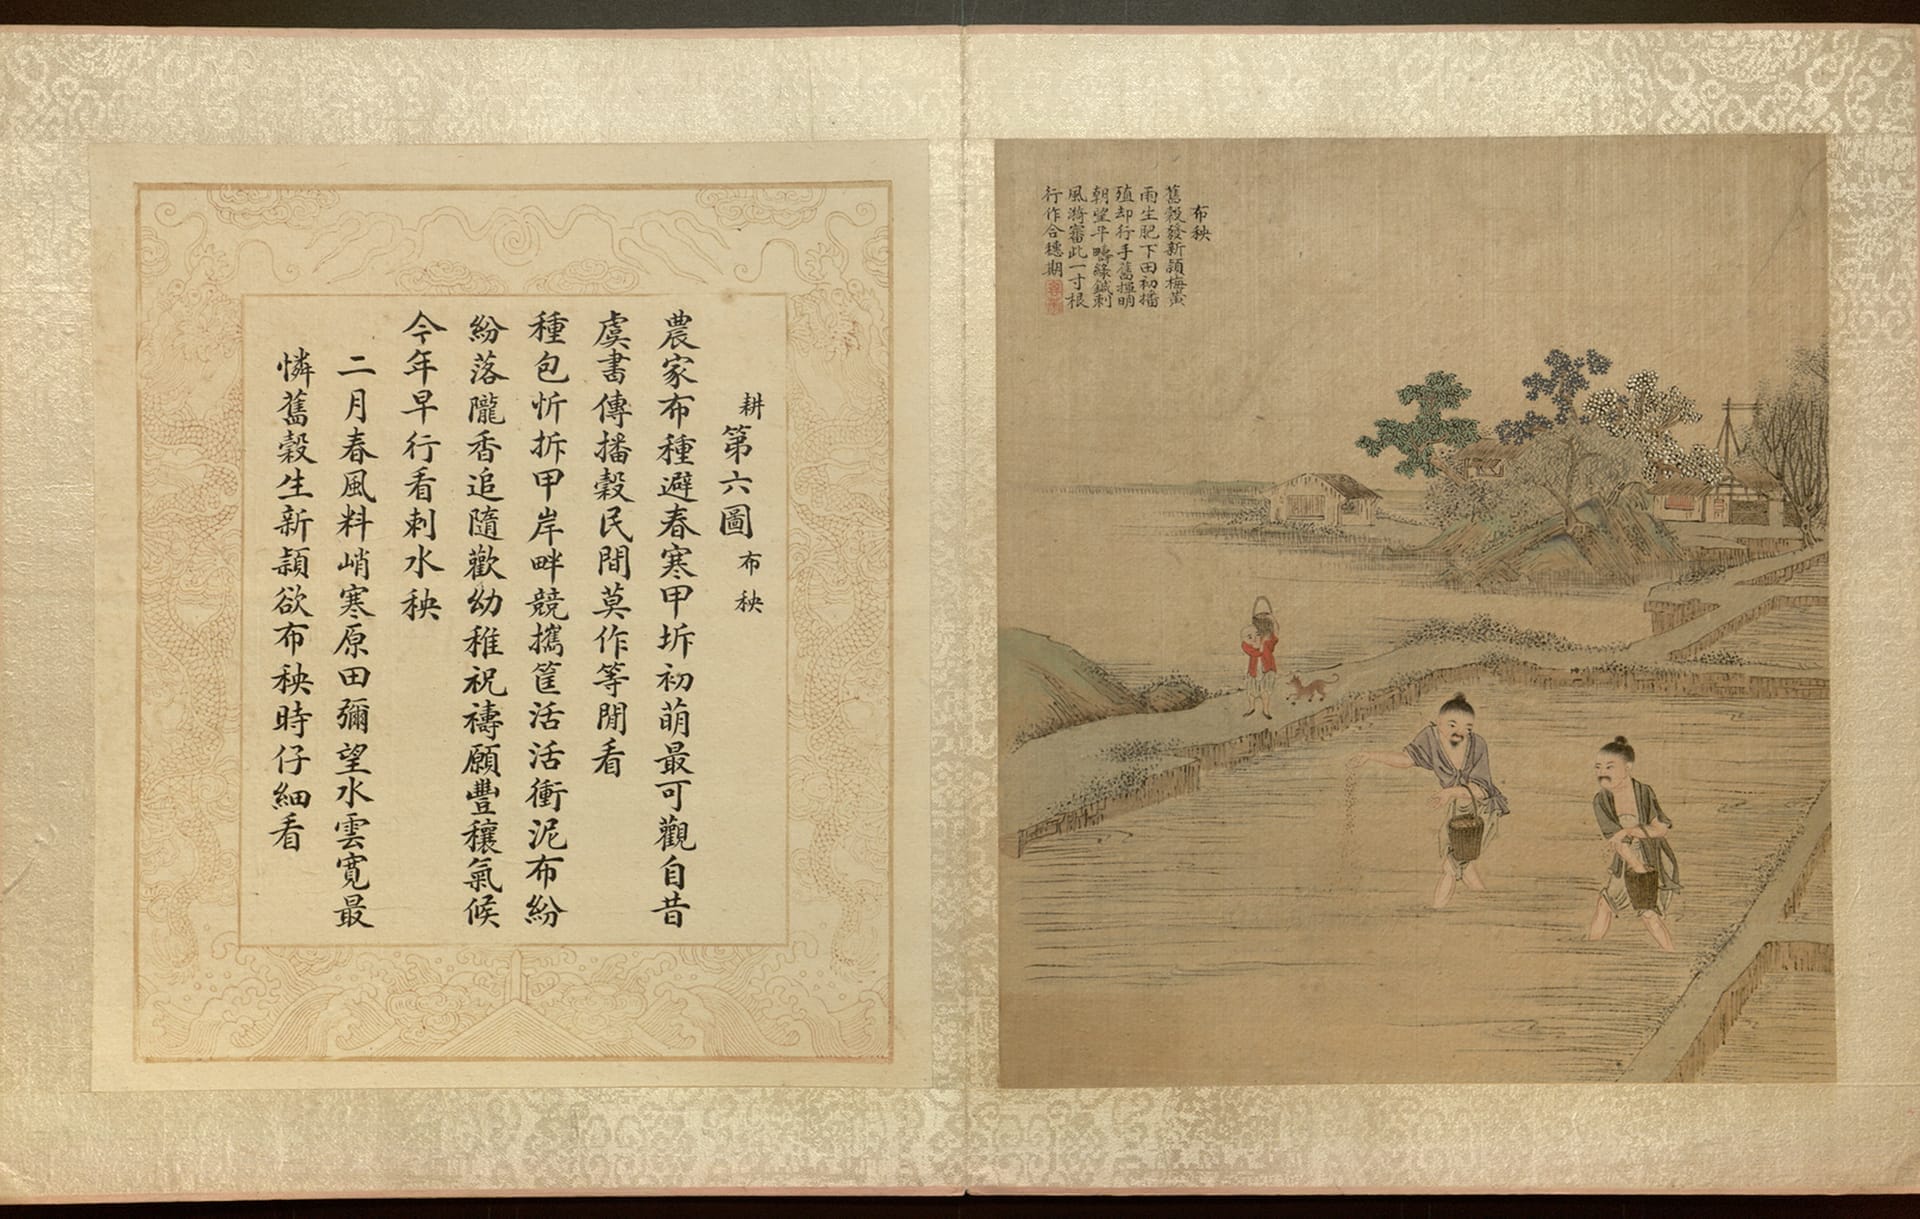 布秧
舊穀發新穎梅黃
雨生肥下田初播
殖却行手舊揮明
朝望平疇綠鍼刺
風漪審此一寸根
行作合穗期
耕第六圖布秧
農家布種避春寒甲坼初萌最可觀自昔
虞書傳播穀民間莫作等閒看
種包忻拆甲岸畔競攜筐活活衝泥布紛
紛落隴香追隨歡幼稚祝禱願豐穰氣候
今年早行看刺水秧
二月春風料峭寒原田彌望水雲寬最
憐舊穀生新穎欲布秧時仔細看